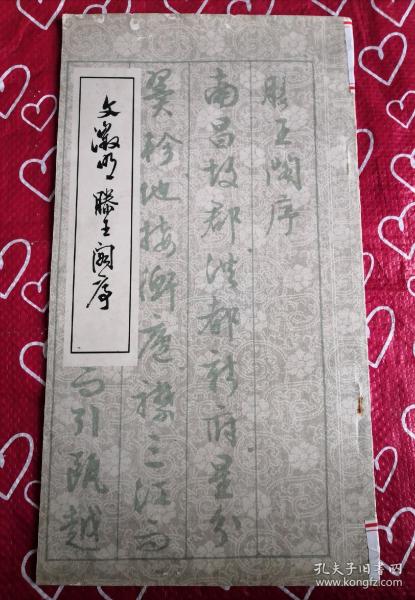 文徵明滕王阁序
滕王閣序
南昌故郡洪都新府星分
翼軫地接衡廬襟三江而
而引甌越
孔夫子旧书网
www.kongfz.com